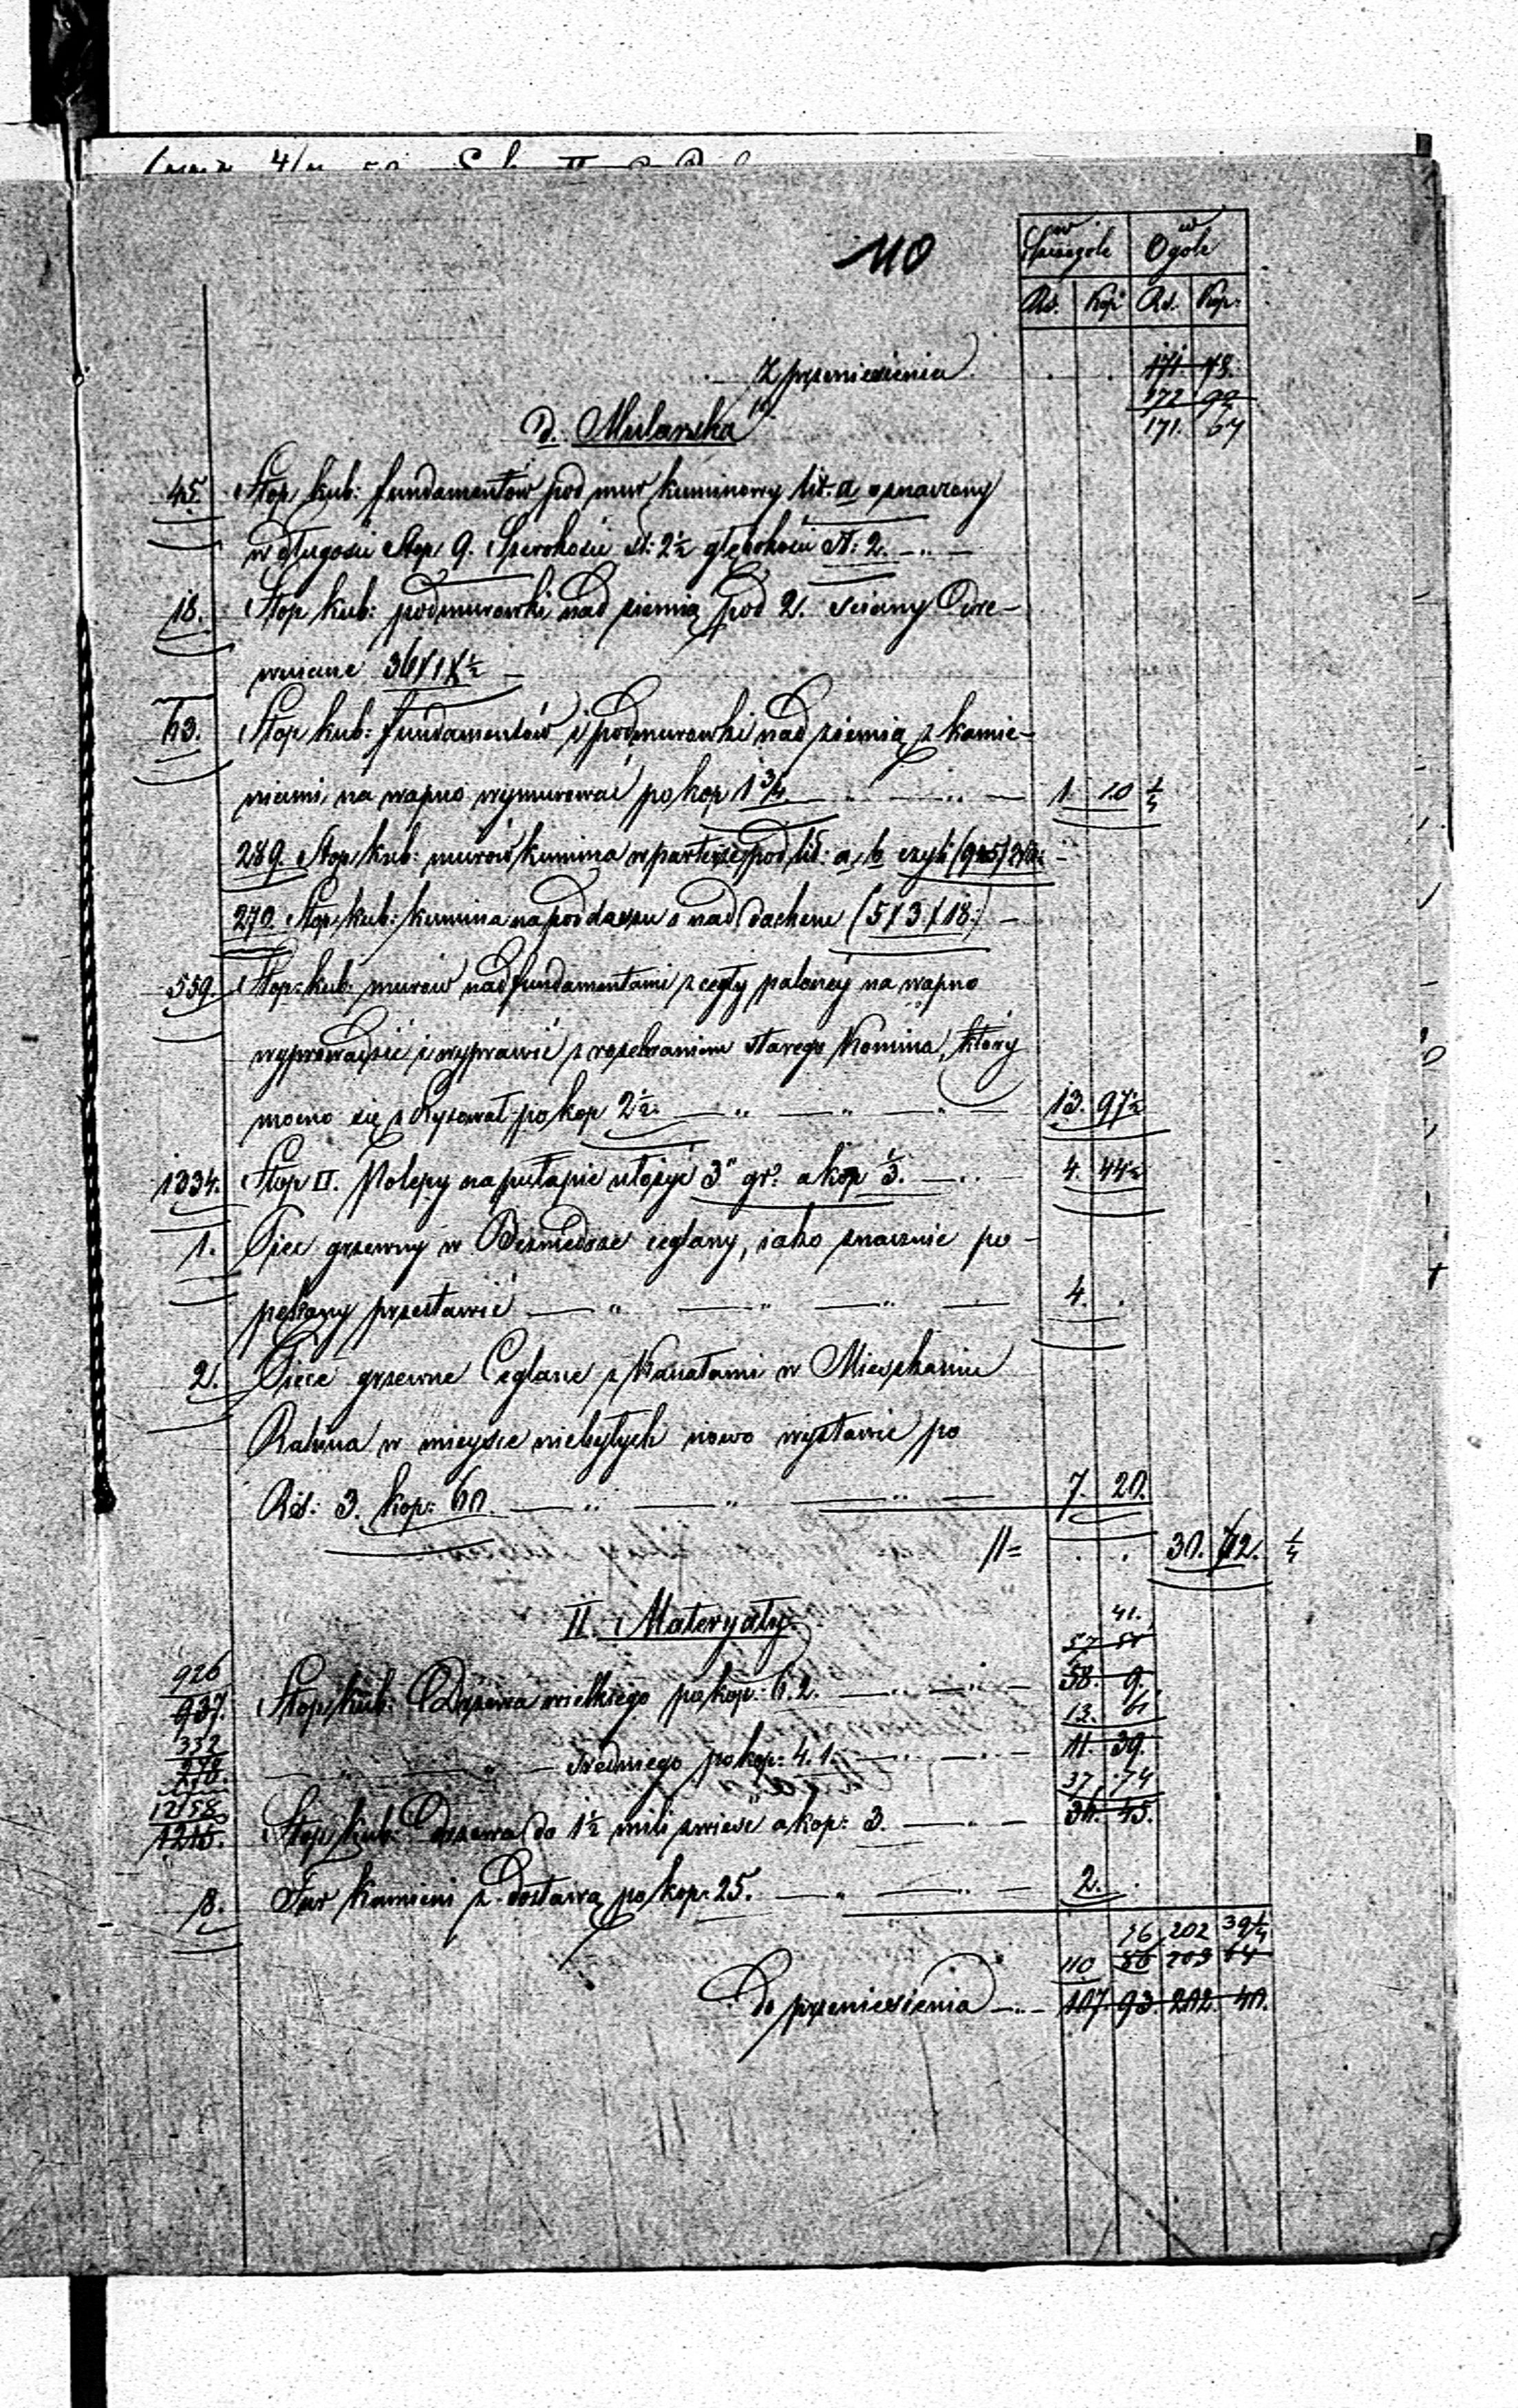 110
w Szczegole w Ogole
Rs. Kop: Rs. Kop:
Z przeniesienia 171 78.
172 90
171. 67
d. Mularska
45. Stop kub: fundamentów pod mur kuminowy lit. a oznaczony
w długości Stop 9. Szerokości st: 2½ głębokości st: 2. — „ —
18. Stop kub: podmurowki nad ziemią pod 2. sciany Dre-
wniane 36/1/½ —
63. Stop kub: fundamentów i podmurowki nad ziemią z kamie-
niami na wapno wymurować po kop 1¾. — „ — „ — 1. 10 ¼
289. Stop kub: murów kumina w parterze pod lit: a, b czyli
270. Stop kub: kumina na poddaszu i nad dachem (5/3/18.) —
559. Stop kub: murów nad fundamentami z cegły palonej na wapno
wyprowadzić i wyprawić z rozebraniem starego Komina, który
mocno się zRysował po kop 2½. — „ — „ — „ — 13. 97½
1334. Stop □. Polepy na pułapie ułożyć 3" gr: a kop ⅓. — „ — 4. 44½
1. Piec grzewny w ceglany, iako znacznie po-
pękany przestawić — „ — „ — „ — 4. .
2. Piece grzewne Ceglane z Kanałami w Mieszkaniu
Rabina w mieysce niebyłych nowo wystawić po
Rs: 3. kop: 60. — „ — „ — „ — 7. 20.
//= . . 30. 72. ¼
II. Materyały.
41.
57
926 58. 9.
937. Stop kub: Drzewa wielkiego po kop: 6.2. — „ — „ —
332 13. 61
278. — „ — „ — Średniego po kop: 4.1. — „ — „ — 11. 39.
1258 37. 74
1215. Stop kub: Drzewa do 1½ mili zwieść a kop: 3. — „ — 36. 45.
8. Fur Kamieni z dostawą po kop: 25. — „ — „ — 2. .
76 202 39¼
110 86 203 64
Do przeniesienia — „ — 107. 93. 202. 40.